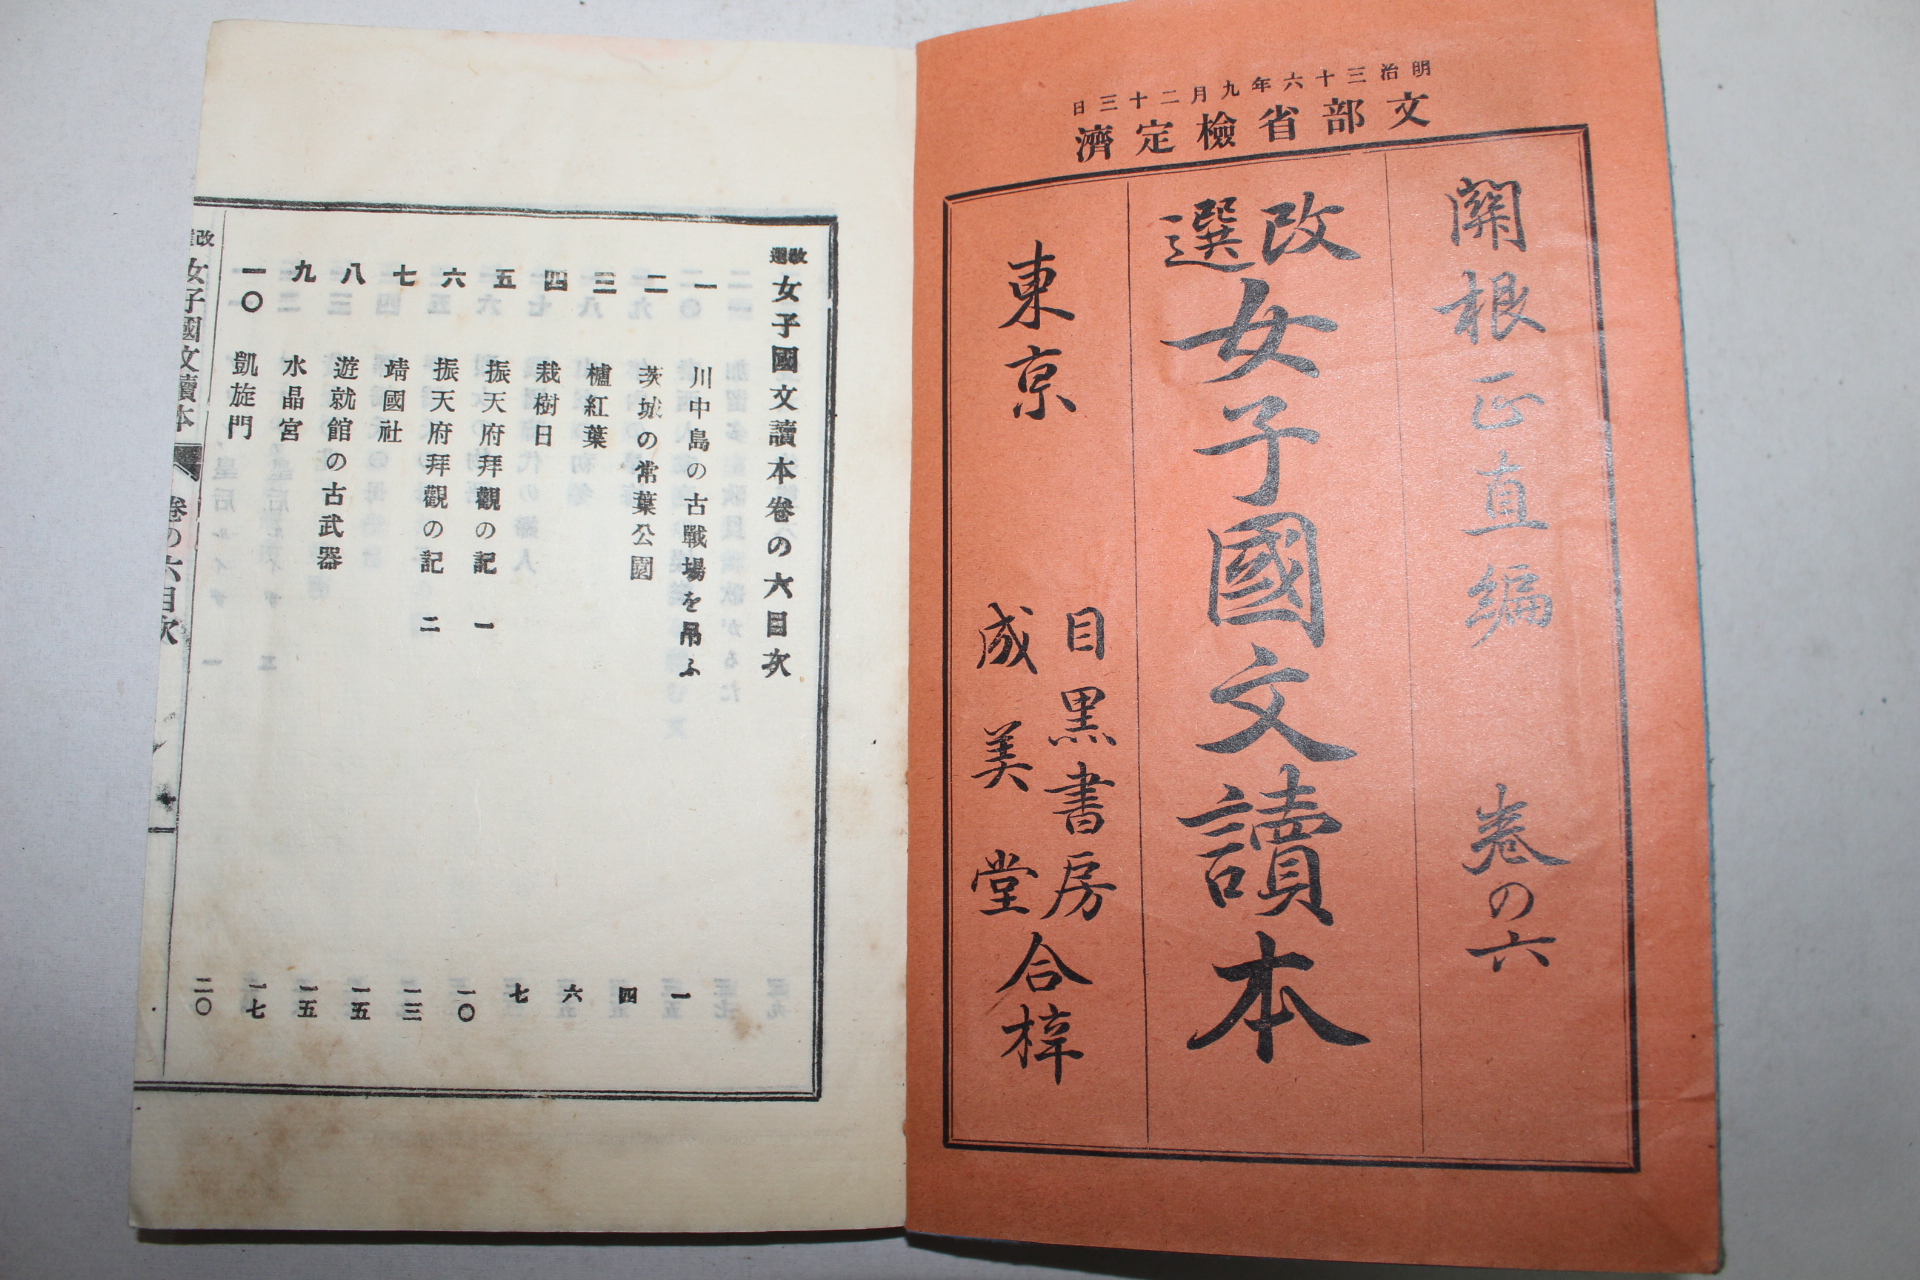 明治三十六年九月二十三日
文部省檢定濟
關根正直編 卷の六
改選 女子國文讀本
東京 目黑書房 成美堂 合梓
改選 女子國文讀本卷の六目次
一 川中島の古戰場を吊ふ 一
二 茨城の常葉公園 四
三 櫨紅葉 六
四 栽樹日 七
五 振天府拜觀の記 一 一〇
六 振天府拜觀の記 二 一三
七 靖國社 一五
八 遊就館の古武器 一五
九 水晶宮 一七
一〇 凱旋門 二〇
女子國文讀本 卷の六目次 一